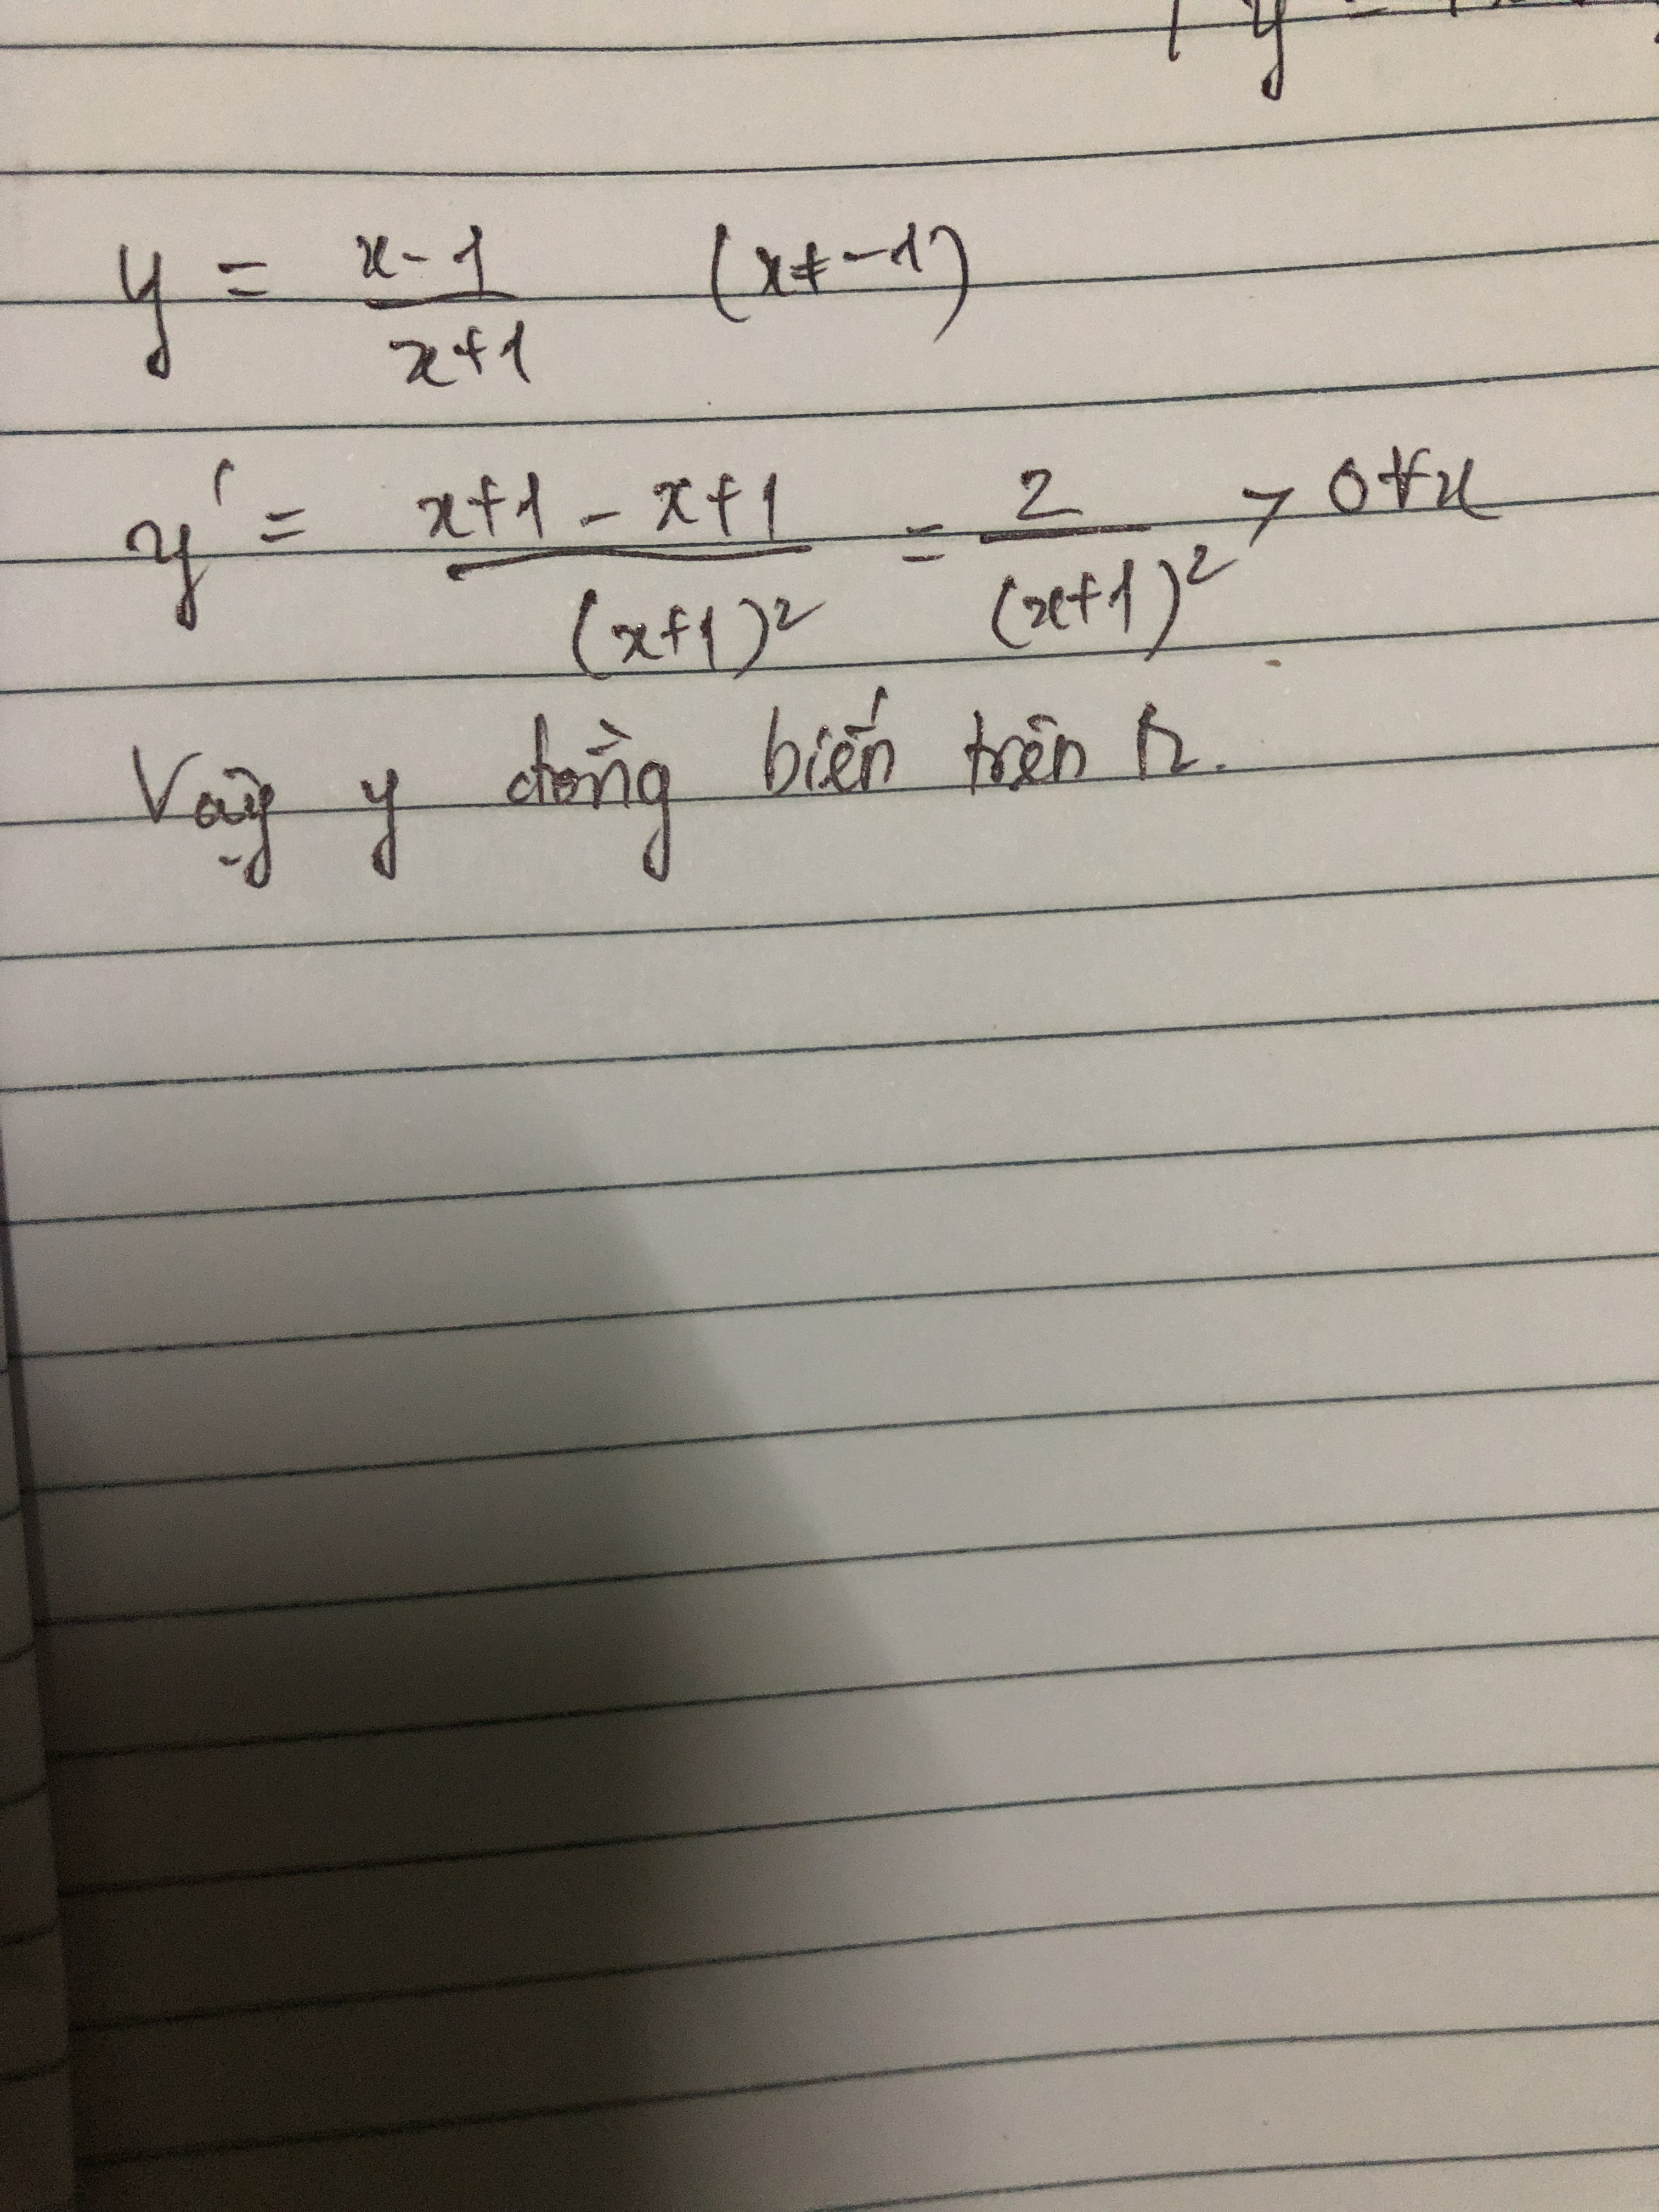 y = \frac{x-1}{x+1} (x ≠ -1)
y' = \frac{x+1-x+1}{(x+1)^2} = \frac{2}{(x+1)^2} > 0 ∀x
Vậy y đồng biến trên R.